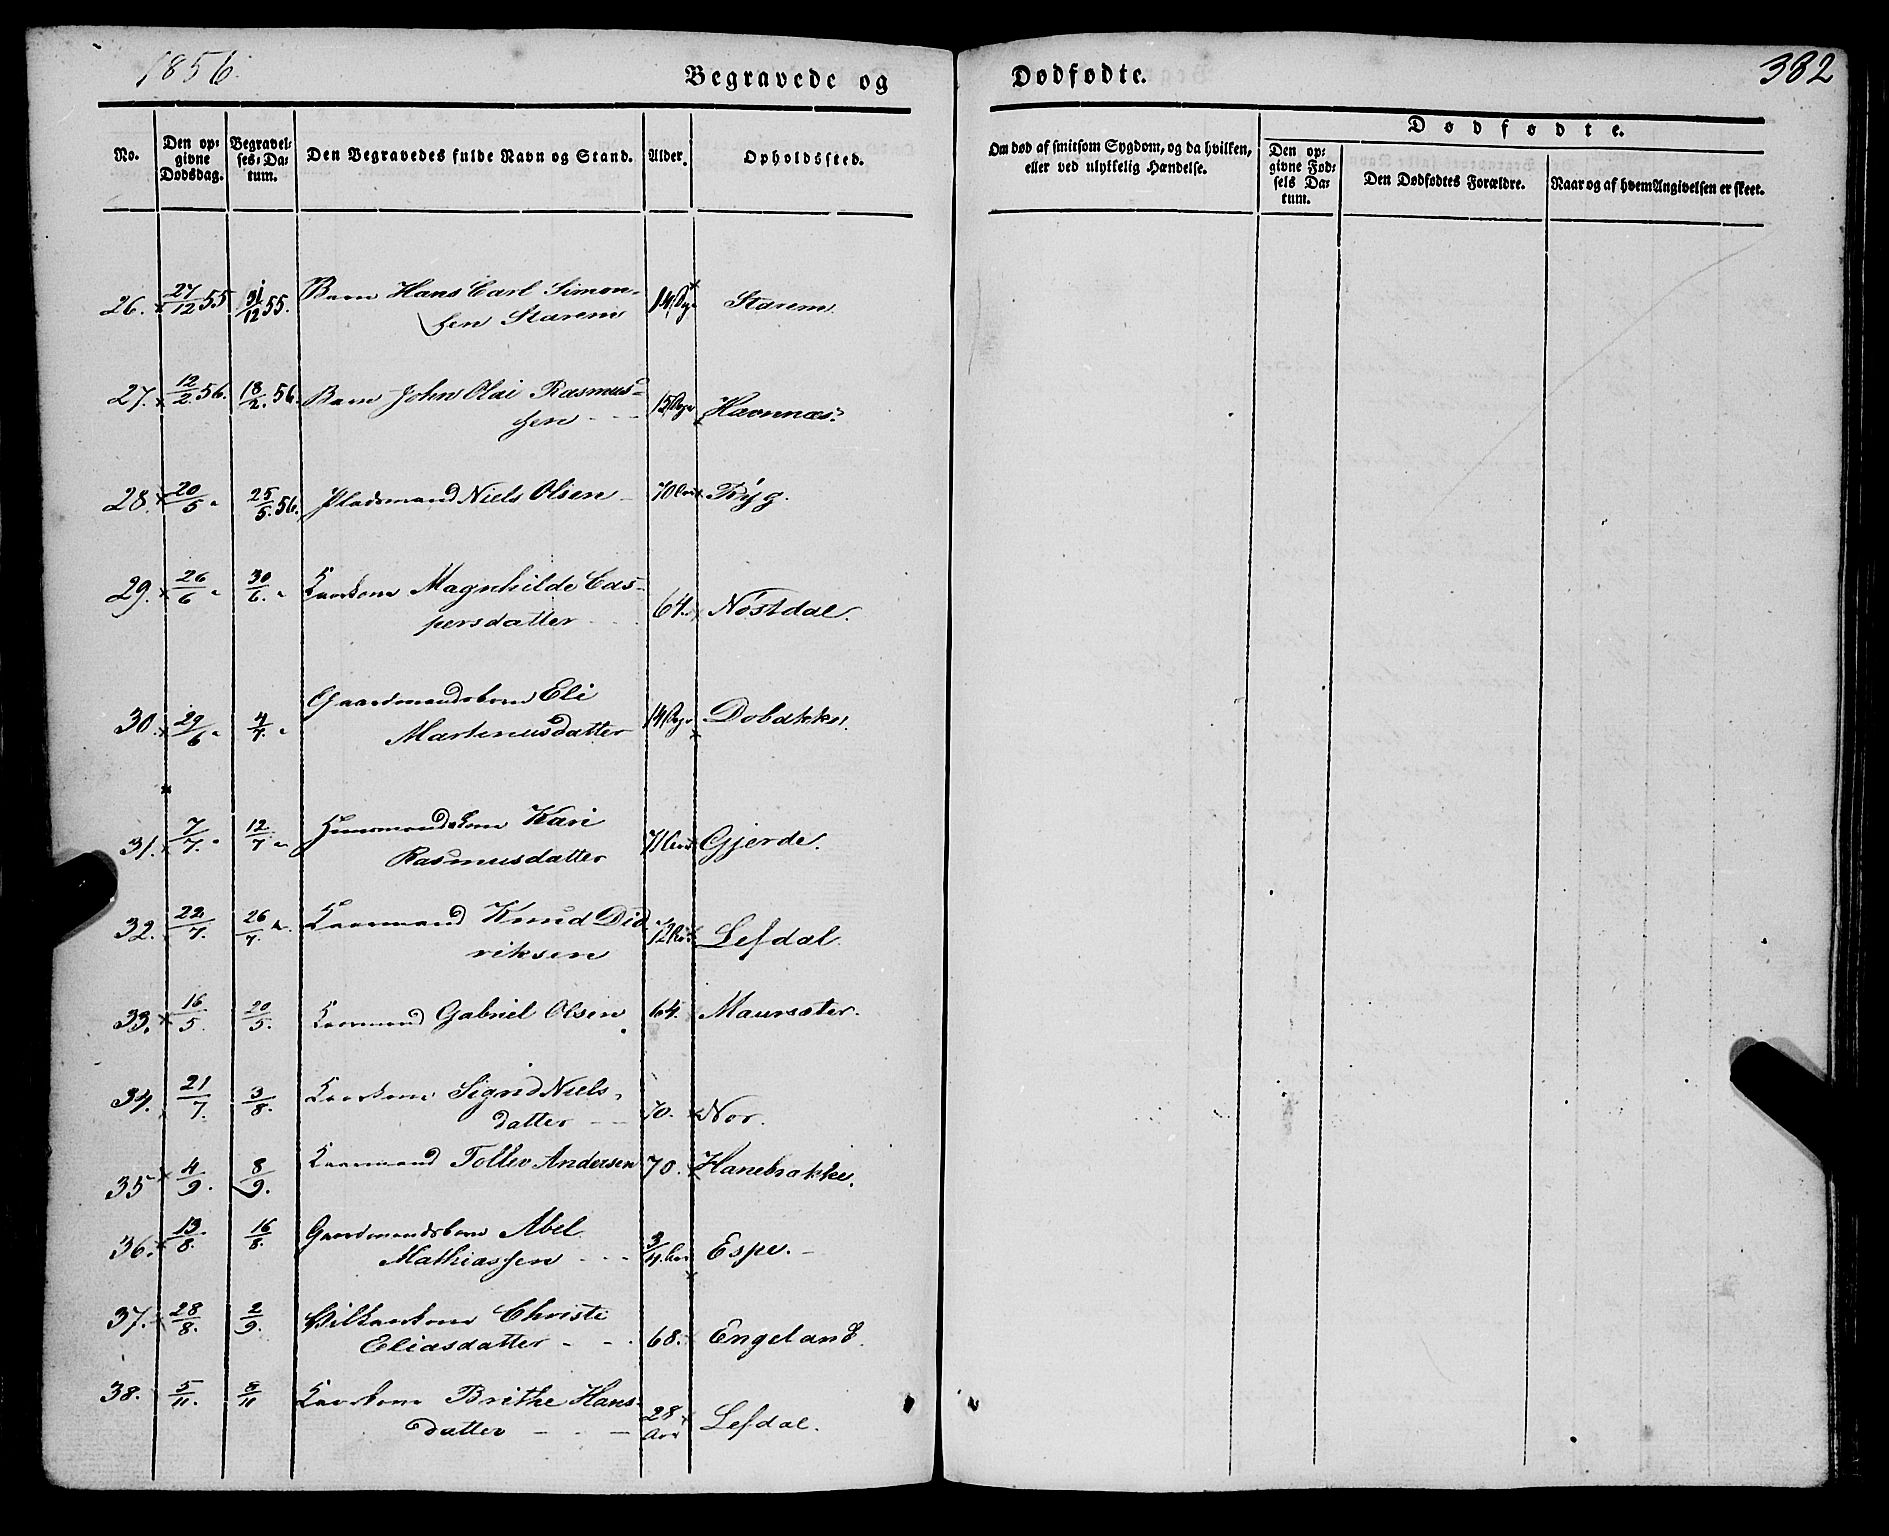 1856.
Begravede og
Dødfødte.
382
No.
Den op-
givne
Dødsdag.
Begravel-
ses-Da-
tum.
Den Begravedes fulde Navn og Stand.
Alder.
Opholdssted.
Om død af smitsom Sygdom, og da hvilken,
eller ved ulykkelig Hændelse.
Dødfødte.
Den op-
givne Fød-
sels Da-
tum.
Den Dødfødtes Forældre.
Naar og af hvem Angivelsen er skeet.
26. 27/12 55 31/12 55. Barn Hans Carl Simon-
sen Starem 14 Dage Starem.
27. 12/2 56. 18/2 56. Barn John Olai Rasmus-
sen 15 Dage Havnnæs.
28. 20/5 " 25/5 56. Pladsmand Niels Olsen 70 Ryg.
29. 26/6 " 30/6 " Magnhilde Cas-
persdatter 64. Nøstdal.
30. 29/6 " 4/7 " Gaardmandsbarn Eli
Martinusdatter 14 Dage
31. 7/7 " 12/7 " Kari
Rasmusdatter 71 Gjerde.
32. 22/7. 26/7. Kaarmand Knud Did
riksen 72 Lefdal.
33. 16/5. 20/5. Kaarmand Gabriel Olsen 64. Maursæter.
34. 21/7. 3/8. Sigrid Niels-
datter 70. Nor.
35 4/9. 8/9. Kaarmand Tollev Andersen 70. Hanebrække.
36. 13/8. 16/8. Gaardmandsbarn Abel
Mathiassen 3/4 Espe.
37. 28/8. 2/9. Christi
Eliasdatter 68. Engeland.
38. 5/11. 8/11 Brithe Hans-
datter 28 Lefdal.
Aar